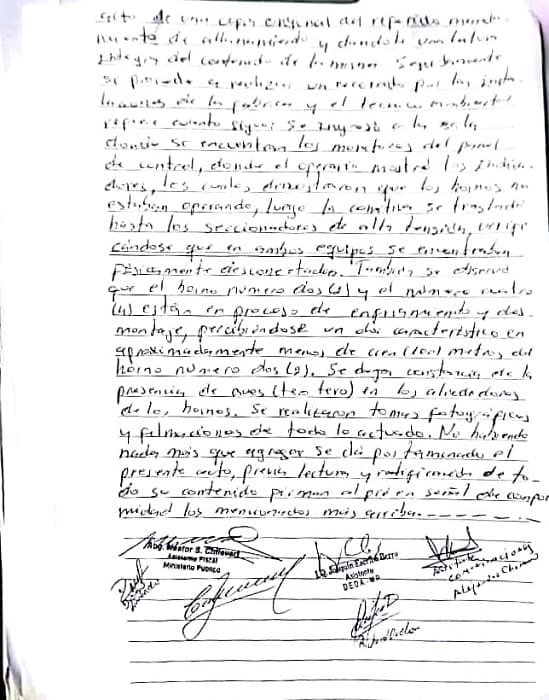 de una copia original del referido manda-
miento de allanamiento y dandole una lectura
integra del contenido de la misma. Seguidamente
se procede a realizar un recorrido por las insta-
laciones de la fabrica y el tecnico ambiental
refiere cuanto sigue: Se ingresó a la sala
donde se encuentran los monitores del panel
de control, donde el operario mostró los indica-
dores, los cuales demostraron que los hornos no
estaban operando, luego la comitiva se trasladó
hasta los seccionadores de alta tensión, verifi-
cándose que en ambos equipos se encontraban
físicamente desconectados. También se observó
que el horno número dos (2) y el número cuatro
(4) están en proceso de enfriamiento y des-
montaje, percibiéndose un olor característico en
aproximadamente menos de cien (100) metros del
horno número dos (2). Se dejan constancia de la
presencia de aves (tero tero) en los alrededores
de los hornos. Se realizaron tomas fotográficas
y filmaciones de todo lo actuado. No habiendo
nada más que agregar se da por terminado el
presente acto, previa lectura y ratificación de to-
do su contenido firman al pie en señal de confor-
midad los mencionados más arriba.
Abg. Néstor S.
Asistente FISCAL
Ministerio Público
Joaquín Barro
Asistente
DEDA - MP
Asistente
comunicaciones
Alejandro
Richard